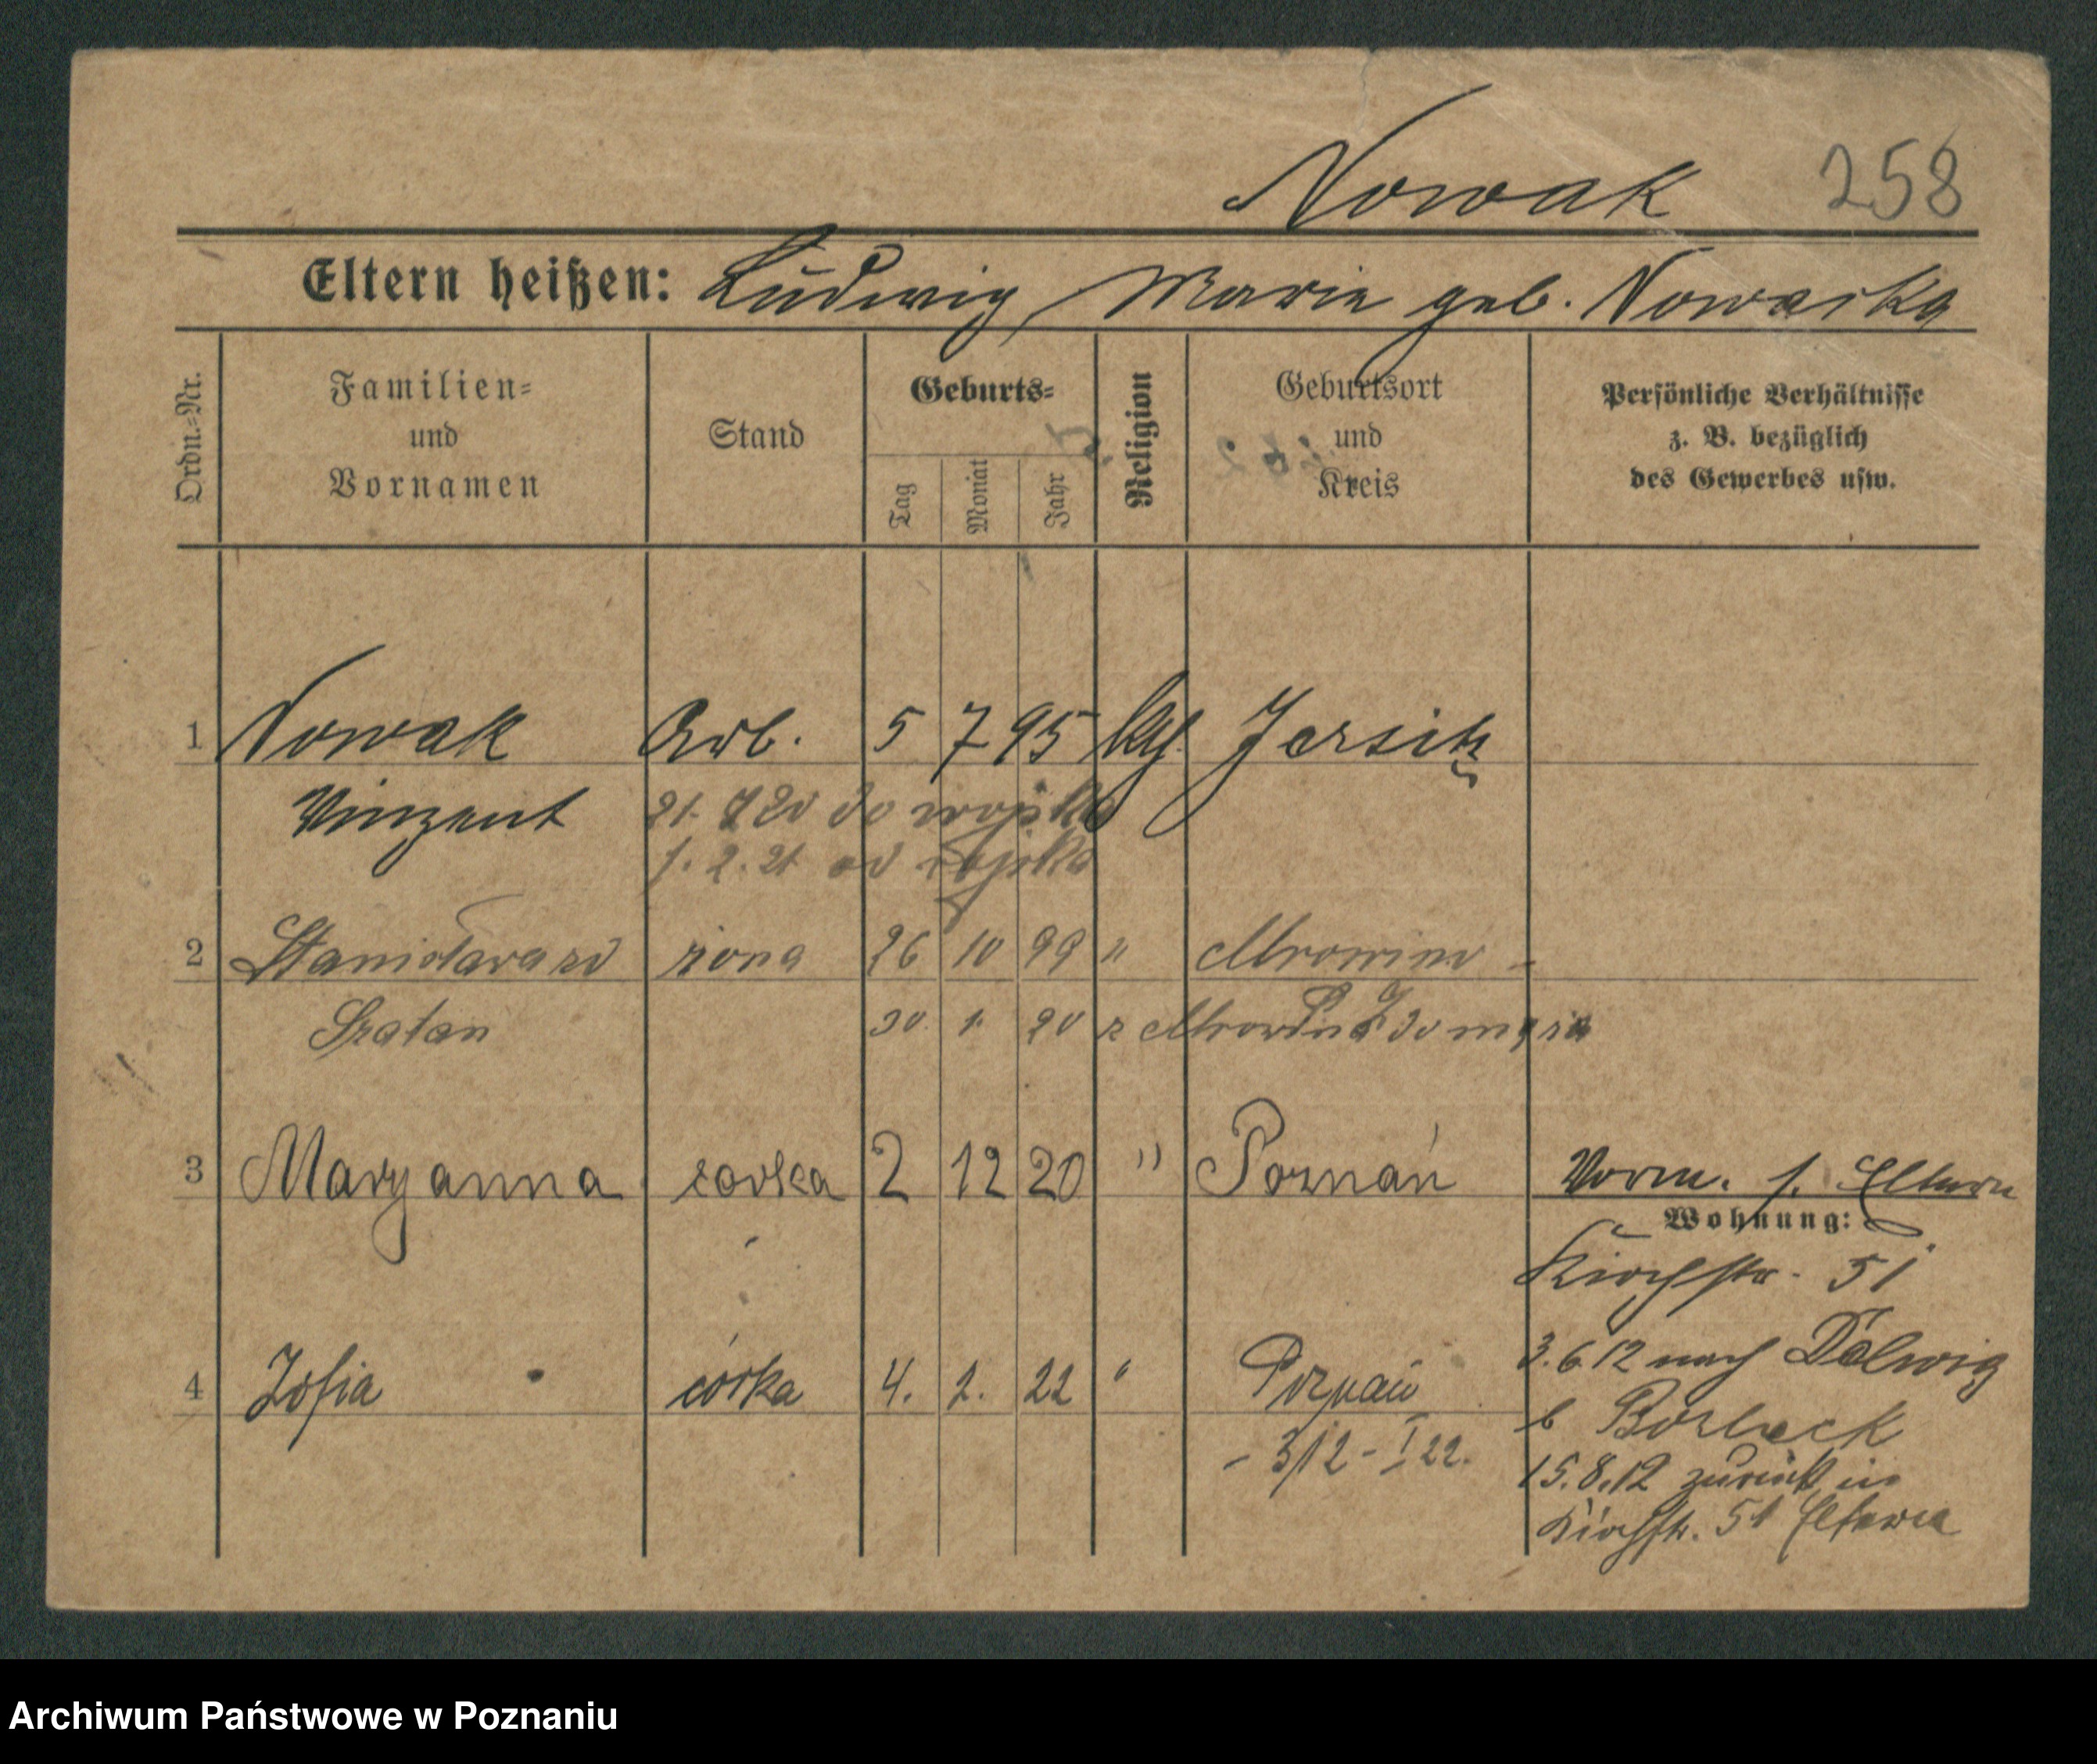 Nowak 258
Eltern heißen: Ludwig, Marie geb. Nowacka
Ordn.-Nr.
Familien-
und
Vornamen
Stand
Geburts-
Tag
Monat
Jahr
Religion
Geburtsort
und
Kreis
Persönliche Verhältnisse
z. B. bezüglich
des Gewerbes usw.
1 Nowak Arb. 5 7 95 kath. Jersitz
Vinzent 21. 7 20 do wojska
1. 2. 21 od wojska
2 Stanisława zd żona 26 10 99 " Mrowino -
Szatan 30. 1. 20 z Mrowina do męża
3 Maryanna córka 2 12 20 " Poznań Vorm. s. Eltern
Wohnung:
Kirchstr. 51
4 Zofia córka 4. 1. 22 " Poznań
- 3/12 - I 22.
3.6.12 nach Dólwig
b Borbeck
15.8.12 zurück in
Kirchstr. 51 Eltern
Archiwum Państwowe w Poznaniu